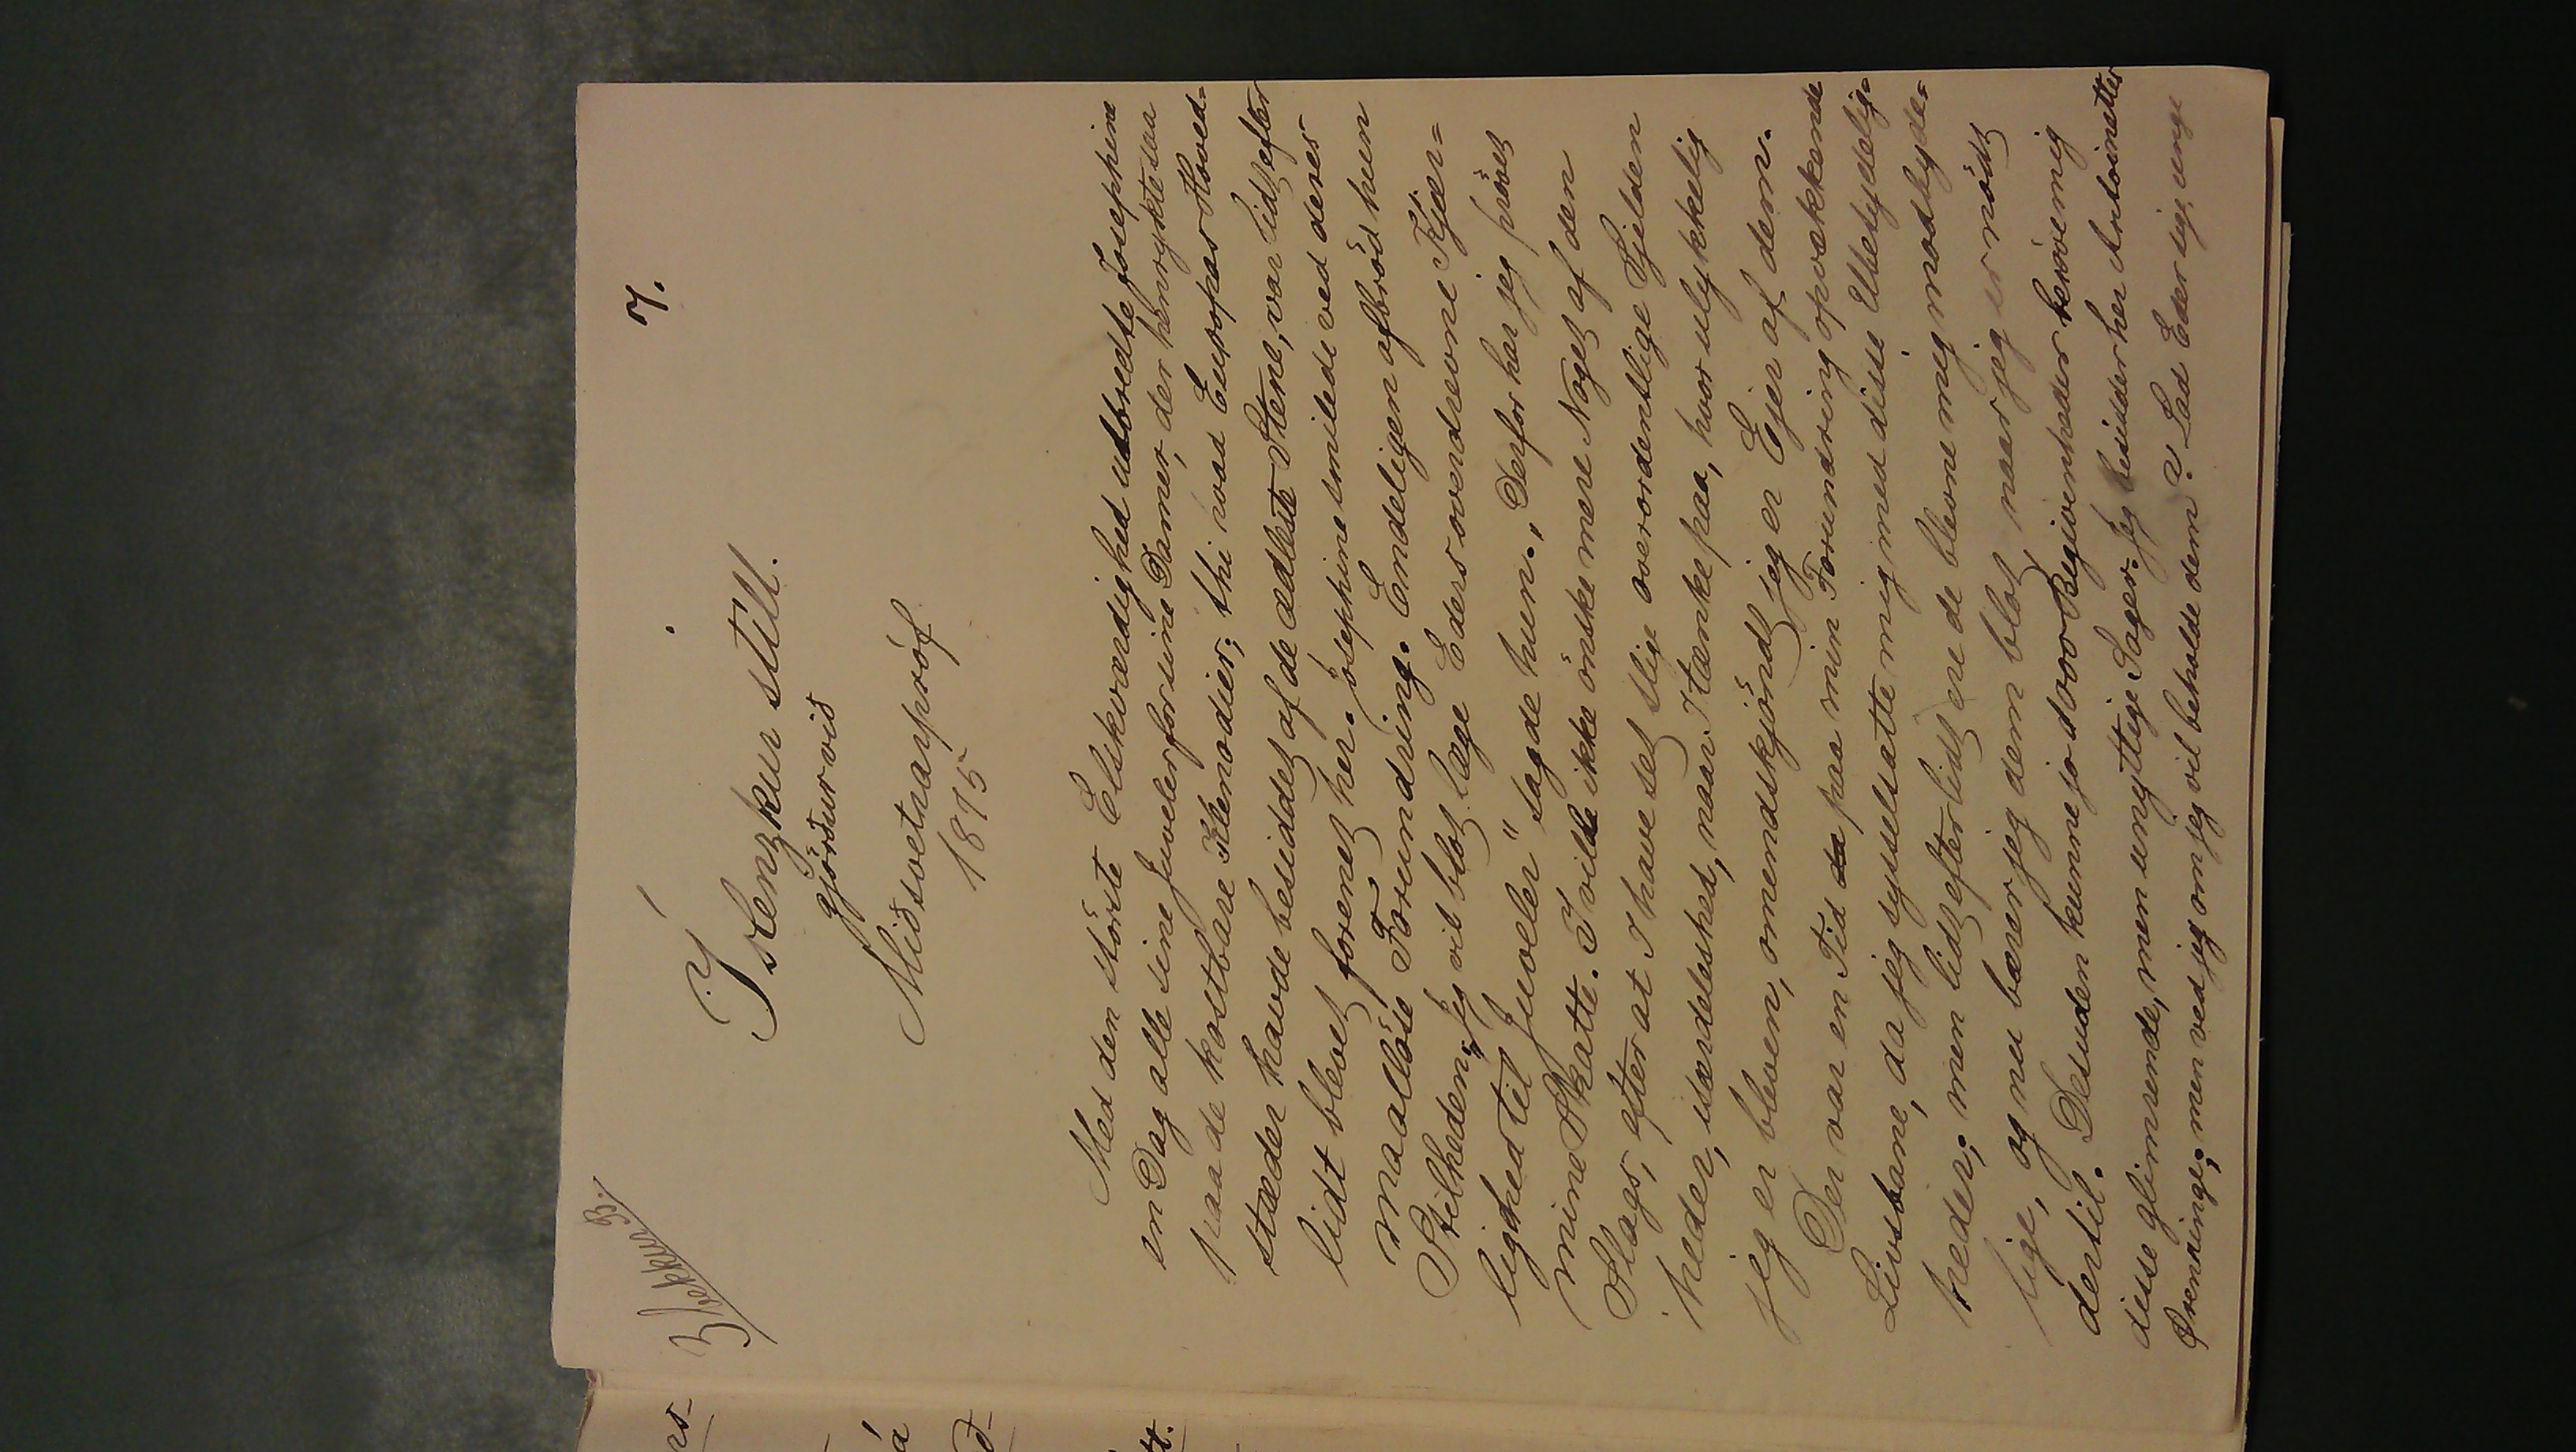 3/bekkur B.
7.
Íslenzkur stíll.
gjörður við
Miðsvetrarpróf
1875
Med den störste Elskværdighed udbredte Josephine
en Dag alle sine Juveler for sine Damer, der henrykte saa
paa de kostbare Klenodier; thi hvad Europas Hoved=
stæder havde besiddet af de ædleste Stene, var lidt efter
lidt blevet forenet her. Josephine smilede ved deres
maalløse Forundring. Endeligen afbröd hun
Stilheden: „Jeg vil blot læge Eders overdrevne Kjær=
lighed til Juveler" sagde hun. „Derfor har jeg prövet
mine Skatte. I ville ikke önske mere Noget af den
Slags, efter at I have set slige overordentlige Sjelden
heder, isærdeleshed, naar I tænke paa, hvor ulykkelig
jeg er bleven, omendskjöndt jeg er Ejer af dem.
Der var en Tid da paa min Forundring opvækkende
Livsbane, da jeg sysselsatte mig med disse Ubetydelig=
heder; men lidt efter lidt ere de blevne mig modbyde=
lige, og nu bærer jeg dem blot, naar jeg er nödt
dertil. Desuden kunne jo store Begivenheder beröve mig
disse glimrende, men unyttige Sager. Jeg besidder her Antoinettes
Örenringe; men ved jeg om jeg vil beholde dem? Lad Eder sige, unge
rs-
á
ð-
tt.